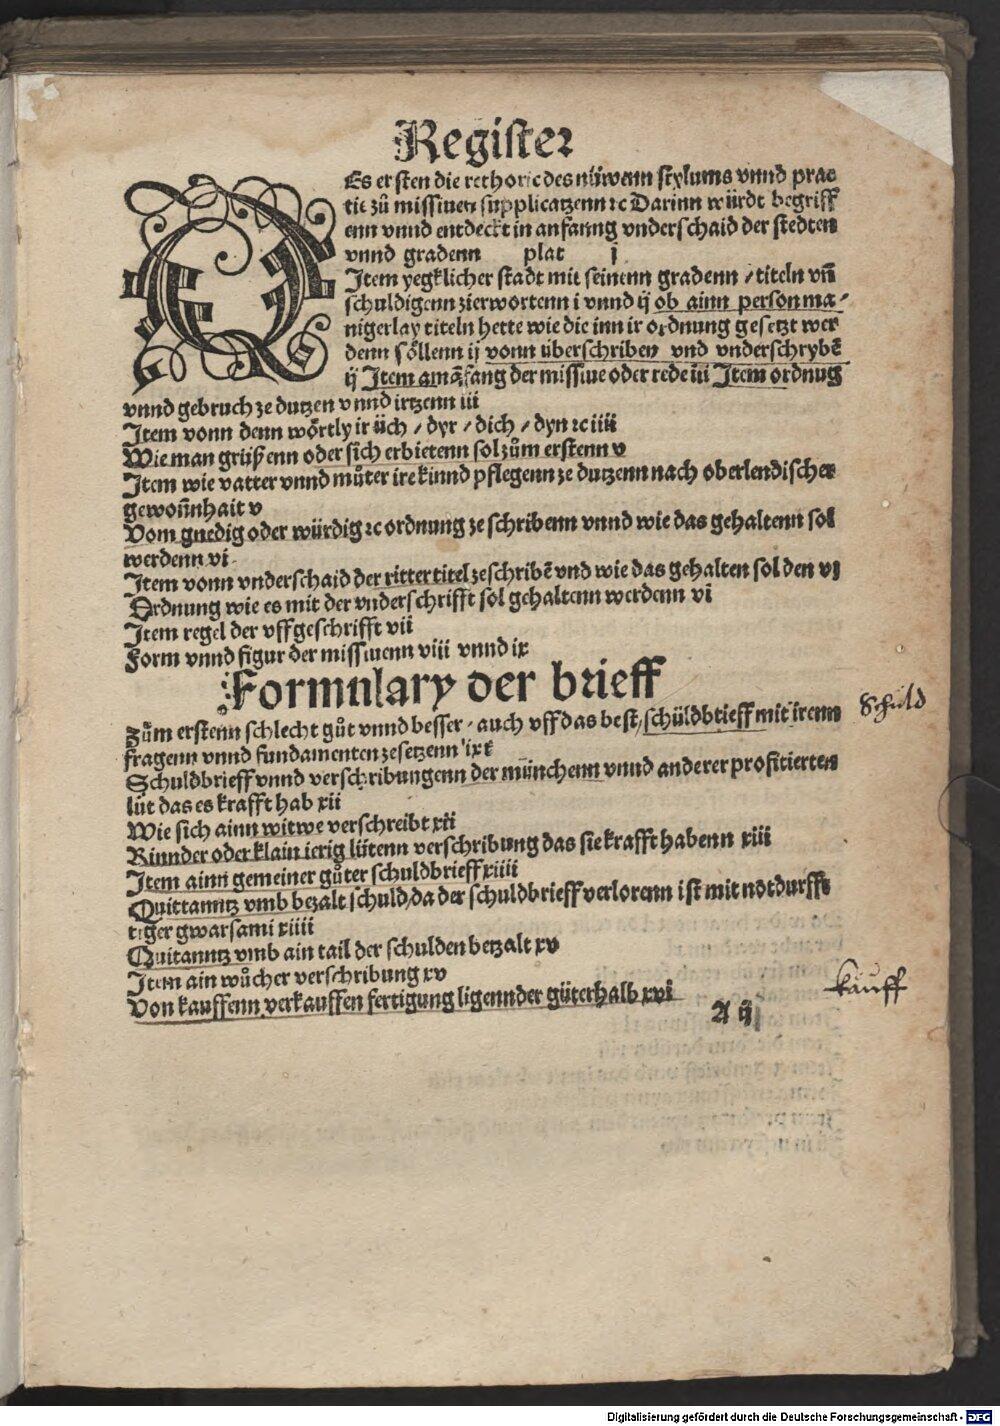 Register
DEs ersten die rethoric des nüwenn stylums vnnd prac
tic zů missiuen supplicatzenn ꝛc Darinn würdt begriff
enn vnnd entdeckt in anfanng vnderschaid der stedten
vnnd gradenn plat i
Item yegklicher stadt mit seinenn gradenn / titeln vn̄
schuldigenn zierwortenn i vnnd ij ob ainn person ma⸗
nigerlay titeln hette wie die inn ir ordnung gesetzt wer
denn sőllenn ij vonn überschriben vnd vnderschrybē
ij Item am āfang der missiue oder rede iii Item ordnūg
vnnd gebruch ze dutzen vnnd irtzenn iii
Item vonn denn wőrtly ir üch / dyr / dich / dyn ꝛc iiii
Wie man grüßenn oder sich erbietenn sol zům erstenn v
Item wie vatter vnnd můter ire kinnd pflegenn ze dutzenn nach oberlendischer
gewon̄nhait v
Vom gnedig oder würdig ꝛc ordnung ze schribenn vnnd wie das gehaltenn sol
werdenn vi
Item vonn vnderschaid der ritter titel ze schribē vnd wie das gehalten sol den vi
Ordnung wie es mit der vnderschrifft sol gehaltenn werdenn vi
Item regel der vffgeschrifft vii
Form vnnd figur der missiuenn viii vnnd ix
Formulary der brieff
Zům erstenn schlecht gůt vnnd besser / auch vff das best / schüldbrieff mit irenn
Schuld
fragenn vnnd fundamenten ze setzenn ix
Schuldbrieff vnnd verschribungenn der münchenn vnnd anderer profitierten
lüt das es krafft hab xii
Wie sich ainn witwe verschreibt xii
Kinnder oder klain ierig lütenn verschribung das sie krafft habenn xiii
Item ainn gemeiner gůter schuldbrieff xiiii
Quittanntz vmb bezalt schuld / da der schuldbrieff verlorenn ist mit notdurff
tiger gwarsami xiiii
Quitanntz vmb ain tail der schulden betzalt xv
Item ain wůcher verschribung xv
kauff
Von kauffenn verkauffen fertigung ligennder güter halb xvi
A ij
Digitalisierung gefördert durch die Deutsche Forschungsgemeinschaft - DFG